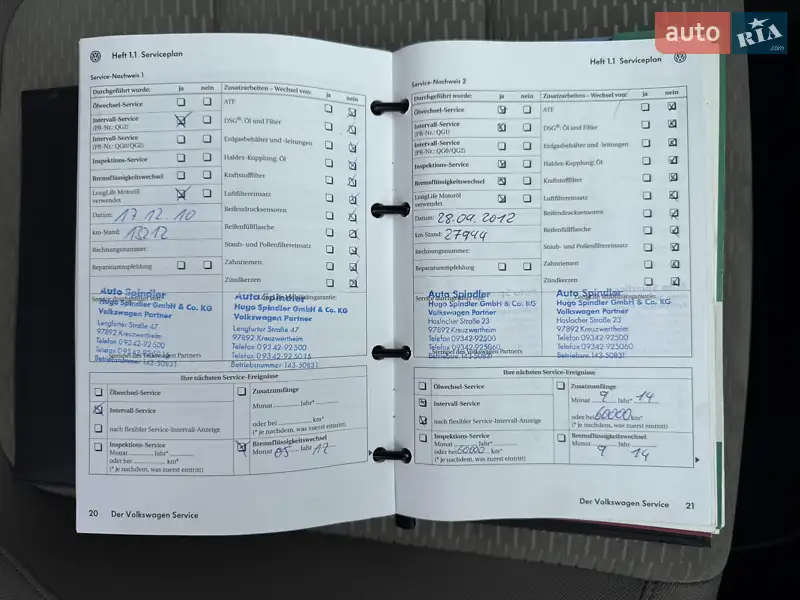 auto RIA.com
Heft 1.1 Serviceplan
Service-Nachweis 1
Durchgeführt wurde: ja nein
Ölwechsel-Service
Intervall-Service
(PR-Nr.: QG1)
Intervall-Service
(PR-Nr.: QG0/QG2)
Inspektions-Service
Bremsflüssigkeitswechsel
LongLife Motoröl
verwendet
Datum: 17 12. 10
km-Stand:
Rechnungsnummer:
Reparaturempfehlung
Zusatzarbeiten – Wechsel von: ja nein
ATF
DSG®: Öl und Filter
Erdgasbehälter und -leitungen
Haldex-Kupplung: Öl
Kraftstofffilter
Luftfiltereinsatz
Reifendrucksensoren
Reifenfüllflasche
Staub- und Pollenfiltereinsatz
Zahnriemen
Zündkerzen
Auto Spindler
Hugo Spindler GmbH & Co. KG
Volkswagen Partner
Lengfurter Straße 47
97892 Kreuzwertheim
Telefon 0 93 42-92 500
Betriebsnummer 143-50831
Stempel des Volkswagen Partners
Auto Spindler
Hugo Spindler GmbH & Co. KG
Volkswagen Partner
Lengfurter Straße 47
97892 Kreuzwertheim
Telefon 0 93 42-92 500
Telefax 0 93 42-92 50 15
Betriebsnummer 143-50831
Ihre nächsten Service-Ereignisse
Ölwechsel-Service
Intervall-Service
nach flexibler Service-Intervall-Anzeige
Inspektions-Service
Monat Jahr*
oder bei km*
(* je nachdem, was zuerst eintritt)
Zusatzumfänge
Monat Jahr*
oder bei km*
(* je nachdem, was zuerst eintritt)
Bremsflüssigkeitswechsel
Monat 05 Jahr 12
20 Der Volkswagen Service
Heft 1.1 Serviceplan
Service-Nachweis 2
Durchgeführt wurde: ja nein
Ölwechsel-Service
Intervall-Service
(PR-Nr.: QG1)
Intervall-Service
(PR-Nr.: QG0/QG2)
Inspektions-Service
Bremsflüssigkeitswechsel
LongLife Motoröl
verwendet
Datum: 28.09.2012
km-Stand: 27944
Rechnungsnummer:
Reparaturempfehlung
Zusatzarbeiten – Wechsel von: ja nein
ATF
DSG®: Öl und Filter
Erdgasbehälter und -leitungen
Haldex-Kupplung: Öl
Kraftstofffilter
Luftfiltereinsatz
Reifendrucksensoren
Reifenfüllflasche
Staub- und Pollenfiltereinsatz
Zahnriemen
Zündkerzen
Auto Spindler
Hugo Spindler GmbH & Co. KG
Volkswagen Partner
Haslocher Straße 23
97892 Kreuzwertheim
Telefon 09342-92500
Telefax 09342-925060
Betriebsnr. 143-50831
Stempel des Volkswagen Partners
Auto Spindler
Hugo Spindler GmbH & Co. KG
Volkswagen Partner
Haslocher Straße 23
97892 Kreuzwertheim
Telefon 09342-92500
Telefax 09342-925060
Betriebsnr. 143-50831
Ihre nächsten Service-Ereignisse
Ölwechsel-Service
Intervall-Service
nach flexibler Service-Intervall-Anzeige
Inspektions-Service
Monat Jahr*
oder bei 60000 km*
(* je nachdem, was zuerst eintritt)
Zusatzumfänge
Monat 9 Jahr* 14
oder bei 60000 km*
(* je nachdem, was zuerst eintritt)
Bremsflüssigkeitswechsel
Monat 9 Jahr 14
Der Volkswagen Service 21